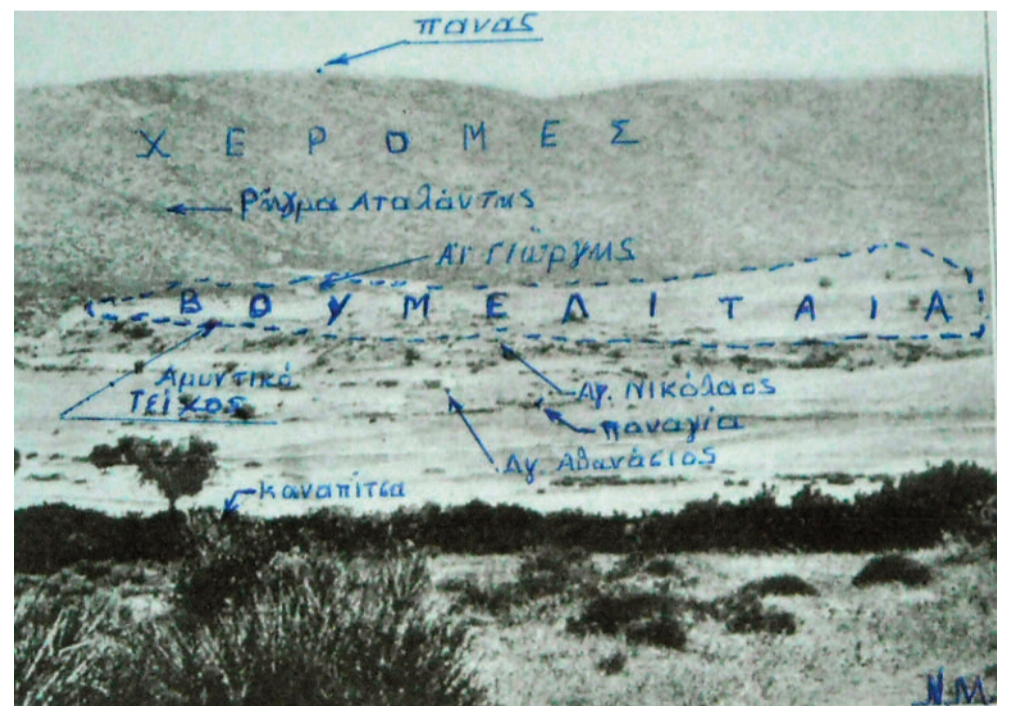 πανας
ΧΕΡΟΜΕΣ
Ρήγμα Αταλάντης
Αϊ Γιώργης
ΒΟΥΜΕΛΙΤΑΙΑ
Αμυντικό
Τείχος
Αγ. Νικόλαος
παναγία
Αγ. Αθανάσιος
καναπίτσα
Ν.Μ.